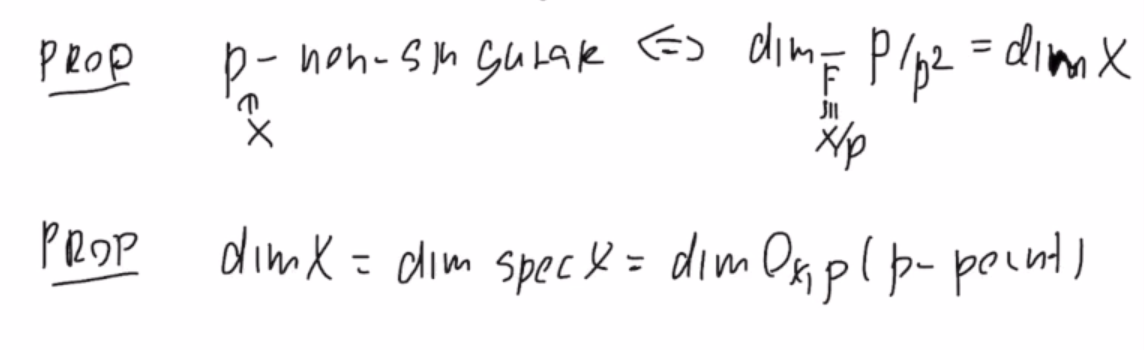 PROP p - non-singular <=> dim_F̄ p/p² = dim X
↑ |||
X X/p
PROP dim X = dim spec X = dim O_{X,p} (p - point)